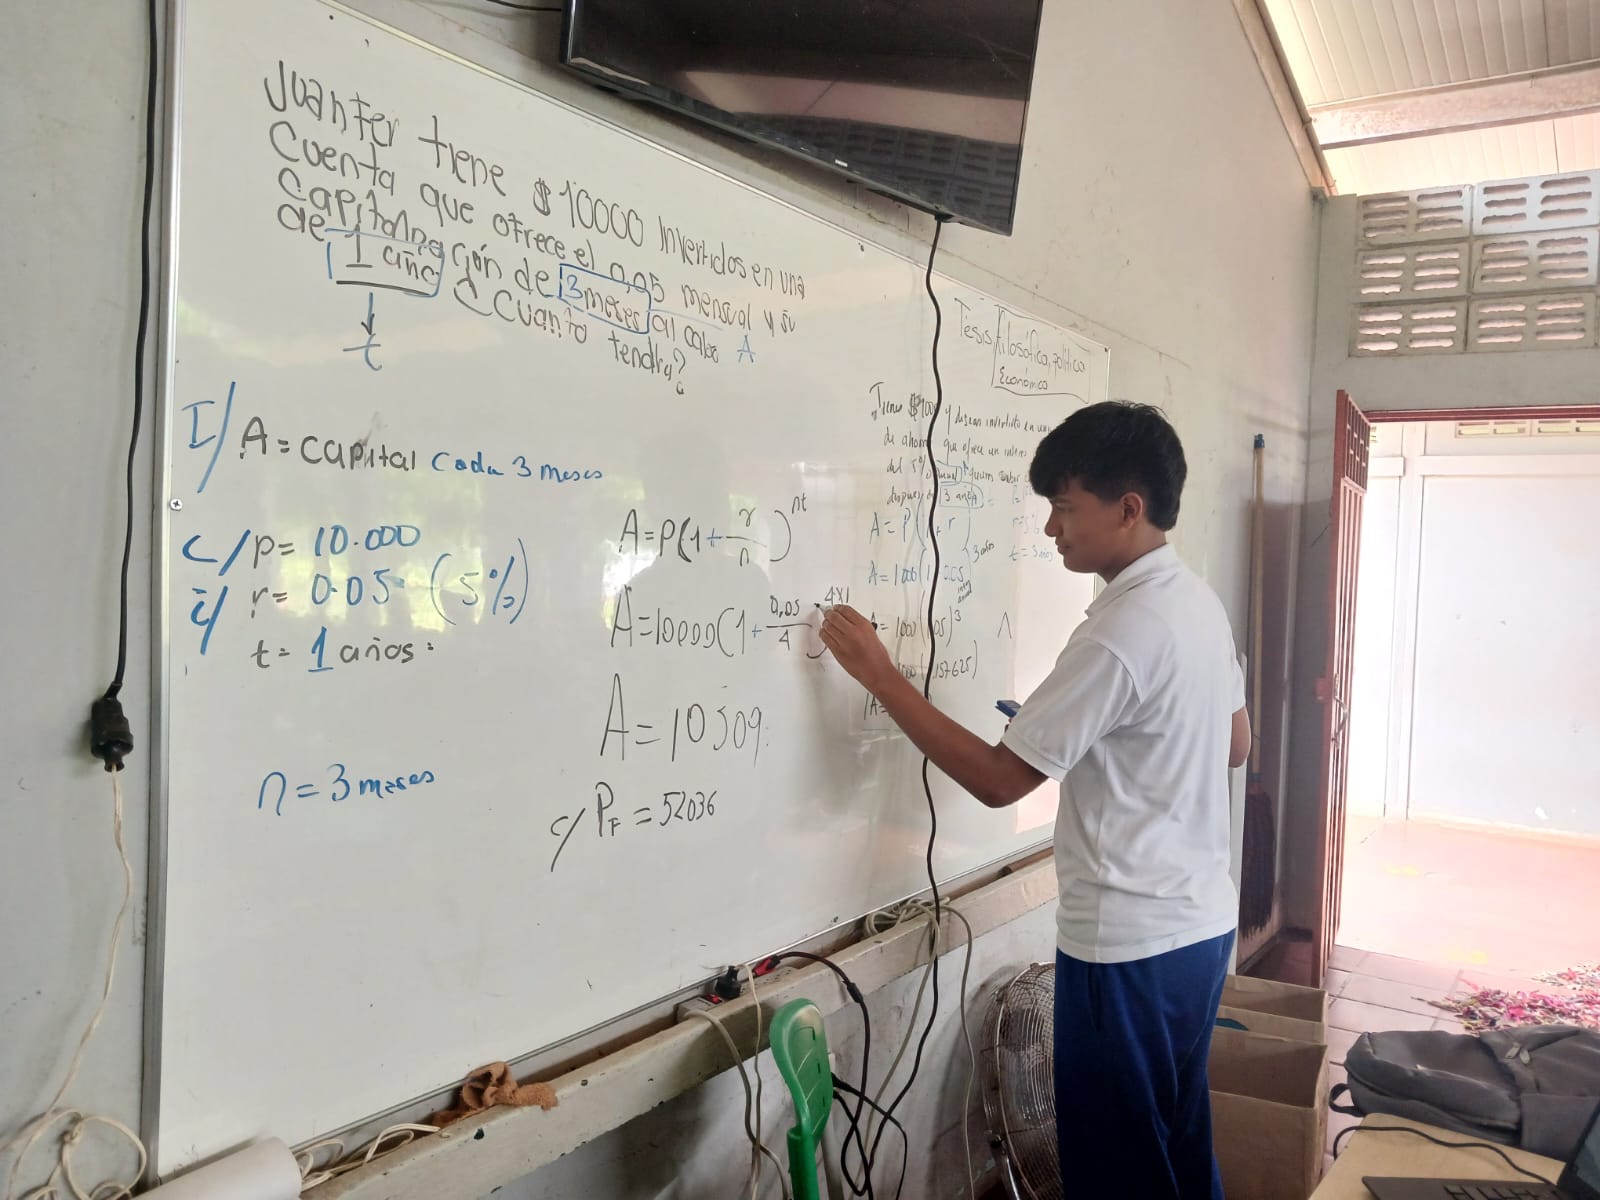 Juanfer tiene $10000 invertidos en una
Cuenta que ofrece el 0,05 mensual y su
Capitalización de 3 meses al cabo A
de 1 año ¿Cuanto tendra?
t
I/ A = capital Cada 3 meses
C/ P = 10.000
i/ r = 0.05 (5%)
t = 1 años:
n = 3 meses
A = P(1 + r/n)^nt
A = 10000(1 + 0,05/4)^4x1
A = 10509
c/ PF = 52036
Tesis filosófica, política
Económica
Tienes $100 y deseas invertirlo en una
de ahorro que ofrece un interes
del 5%
después de 3 años
A = P(1 + r) 3 años
r = 5%
t = 3 años
A = 1000(1 0.05
A = 1000(1.05)^3
157625)
A =